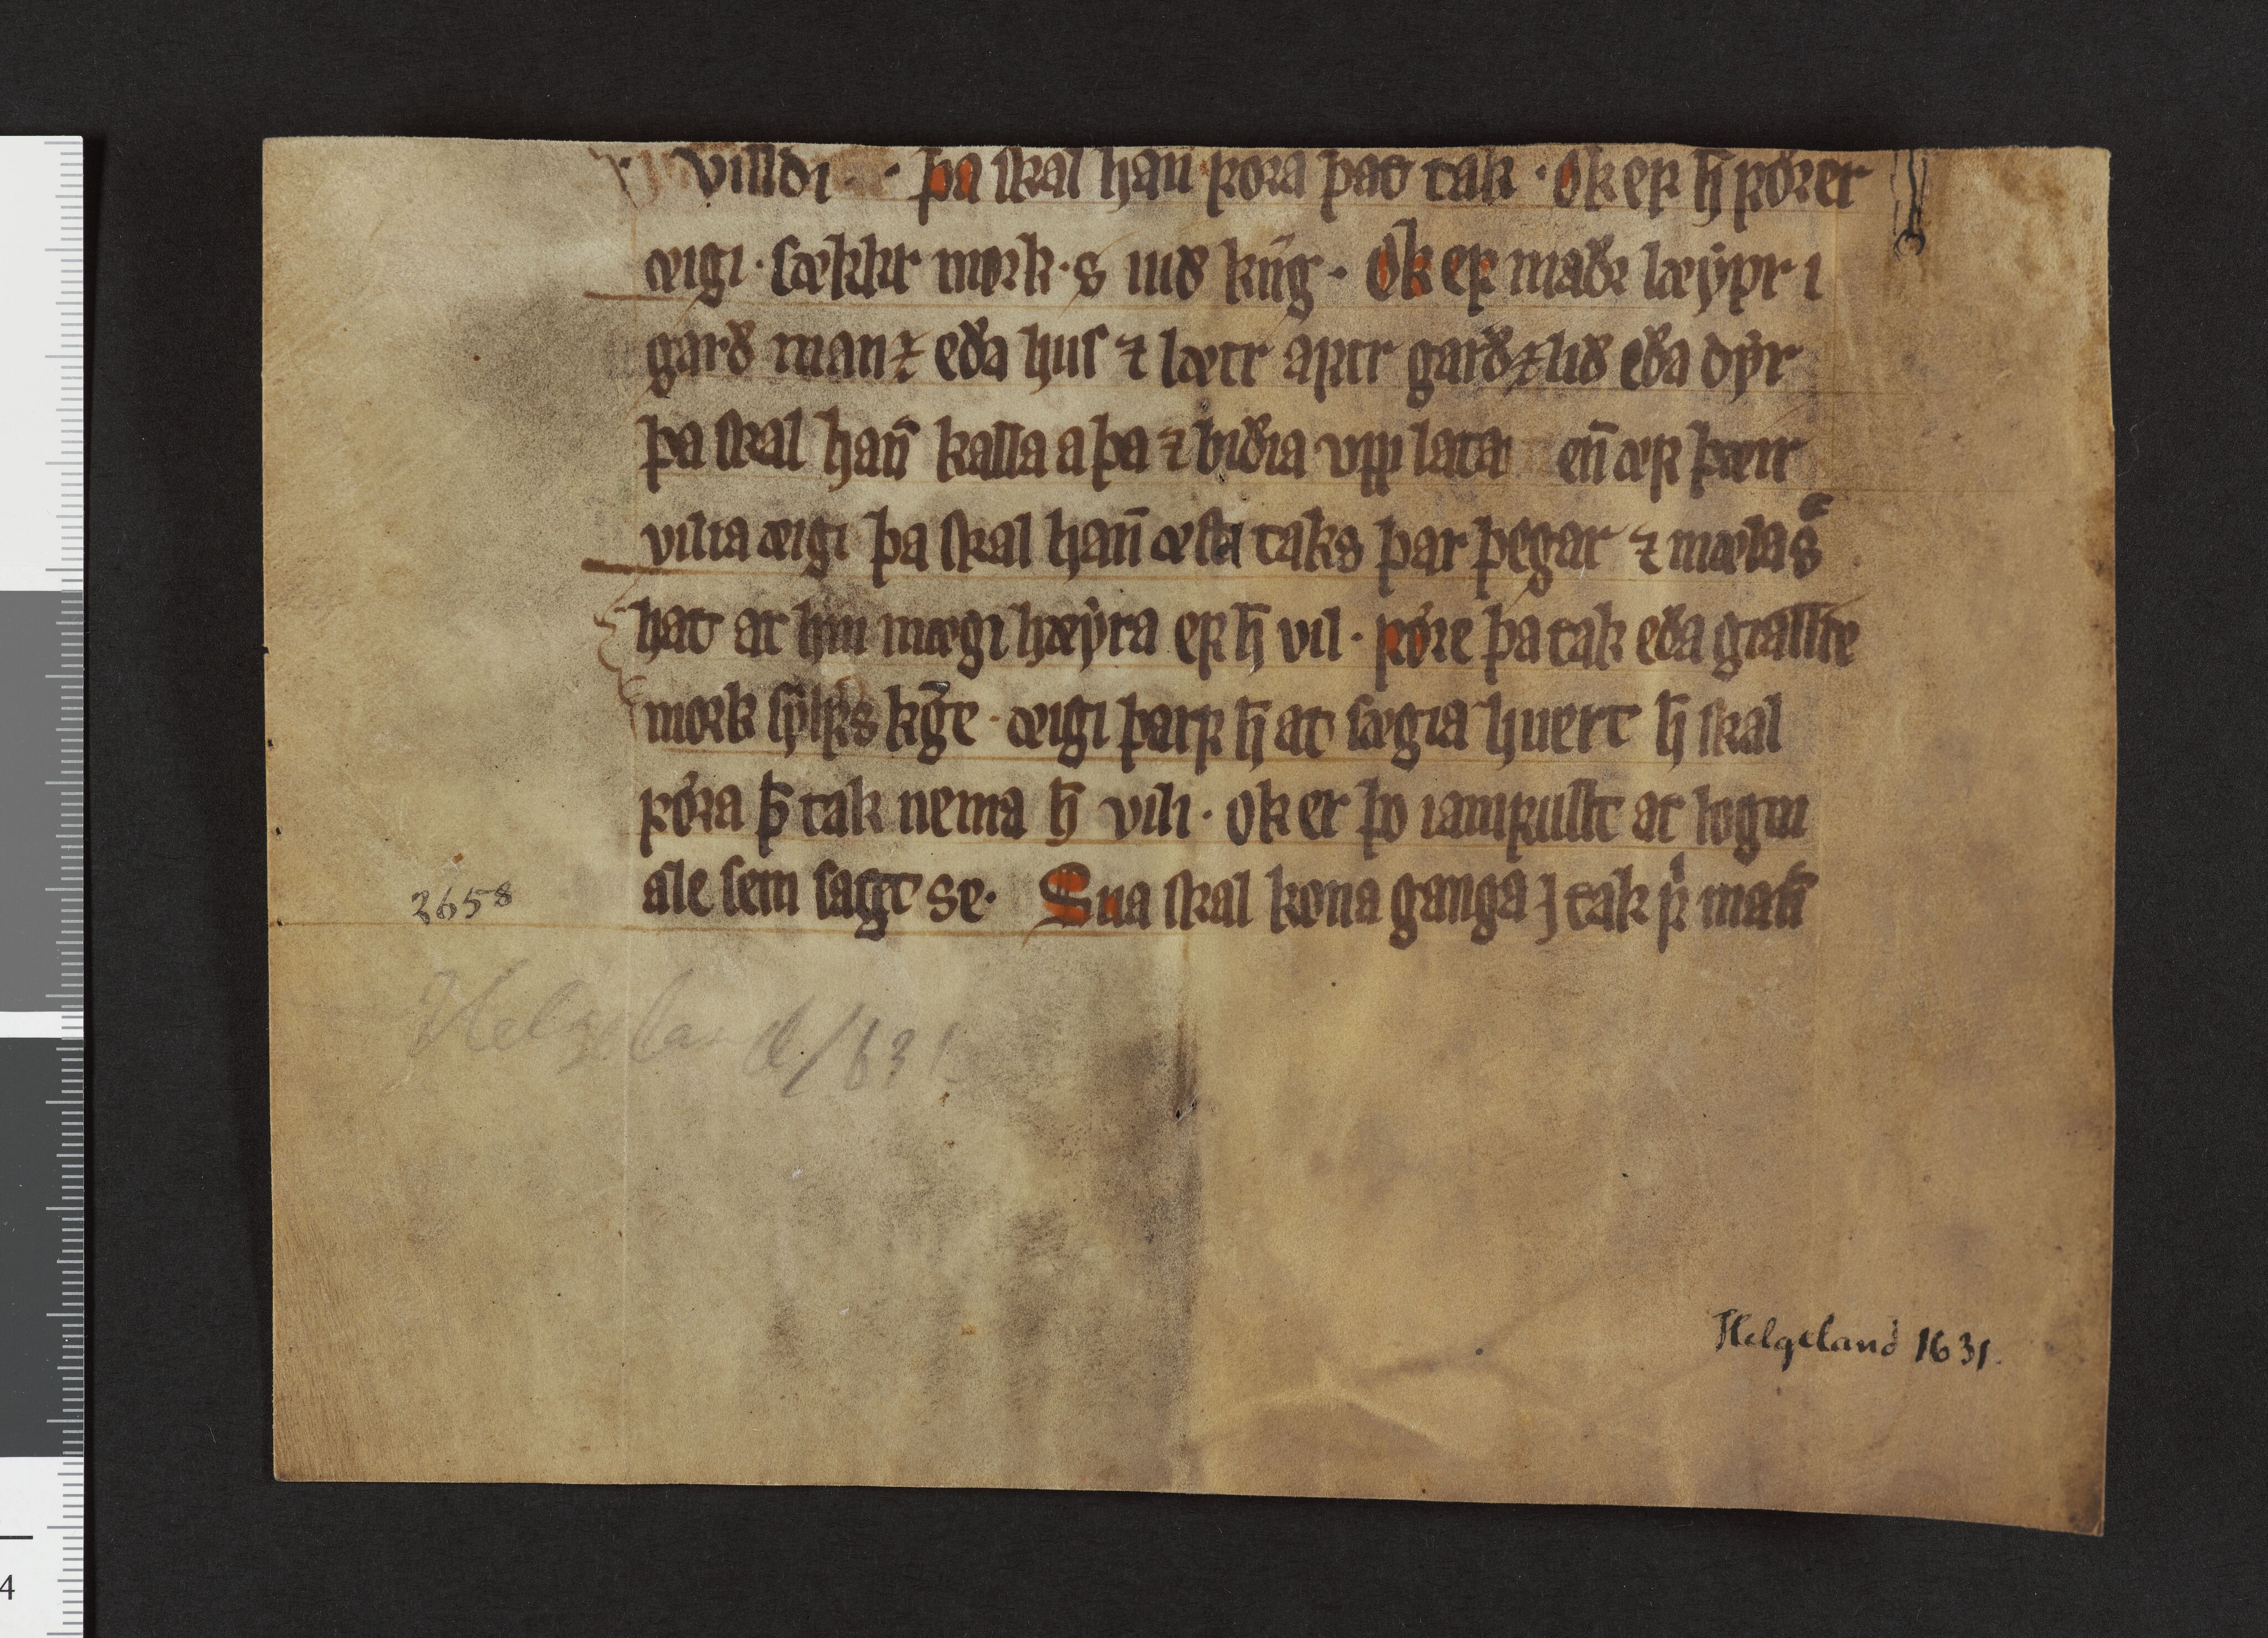 villdi · þa skal han fora þat tak · Ok ef h̄ fórer
æigi · sækkr mork · s við kng · Ok ef maðr læypr i
garð manz eða hus ⁊ lætr aftr garðz lið eða dyr
þa skal han̄ kalla a þa ⁊ biðia vpp lata en̄ æf þæir
vilia æigi þa skal han̄ æsta taks þar þegar ⁊ mæla s
hat at hin mægi hæyra ef h̄ vil · fóre þa tak eða giallde
mork sylfrs kḡe · æigi þarf h̄ at sægia huert h̄ skal
fóra þ̄ tak nema h̄ vili · ok er þo iamfullt at logum
ale sem sagt se · Sua skal kona ganga j tak fͥ man̄
3658
Helgeland 1631
Helgeland 1631.